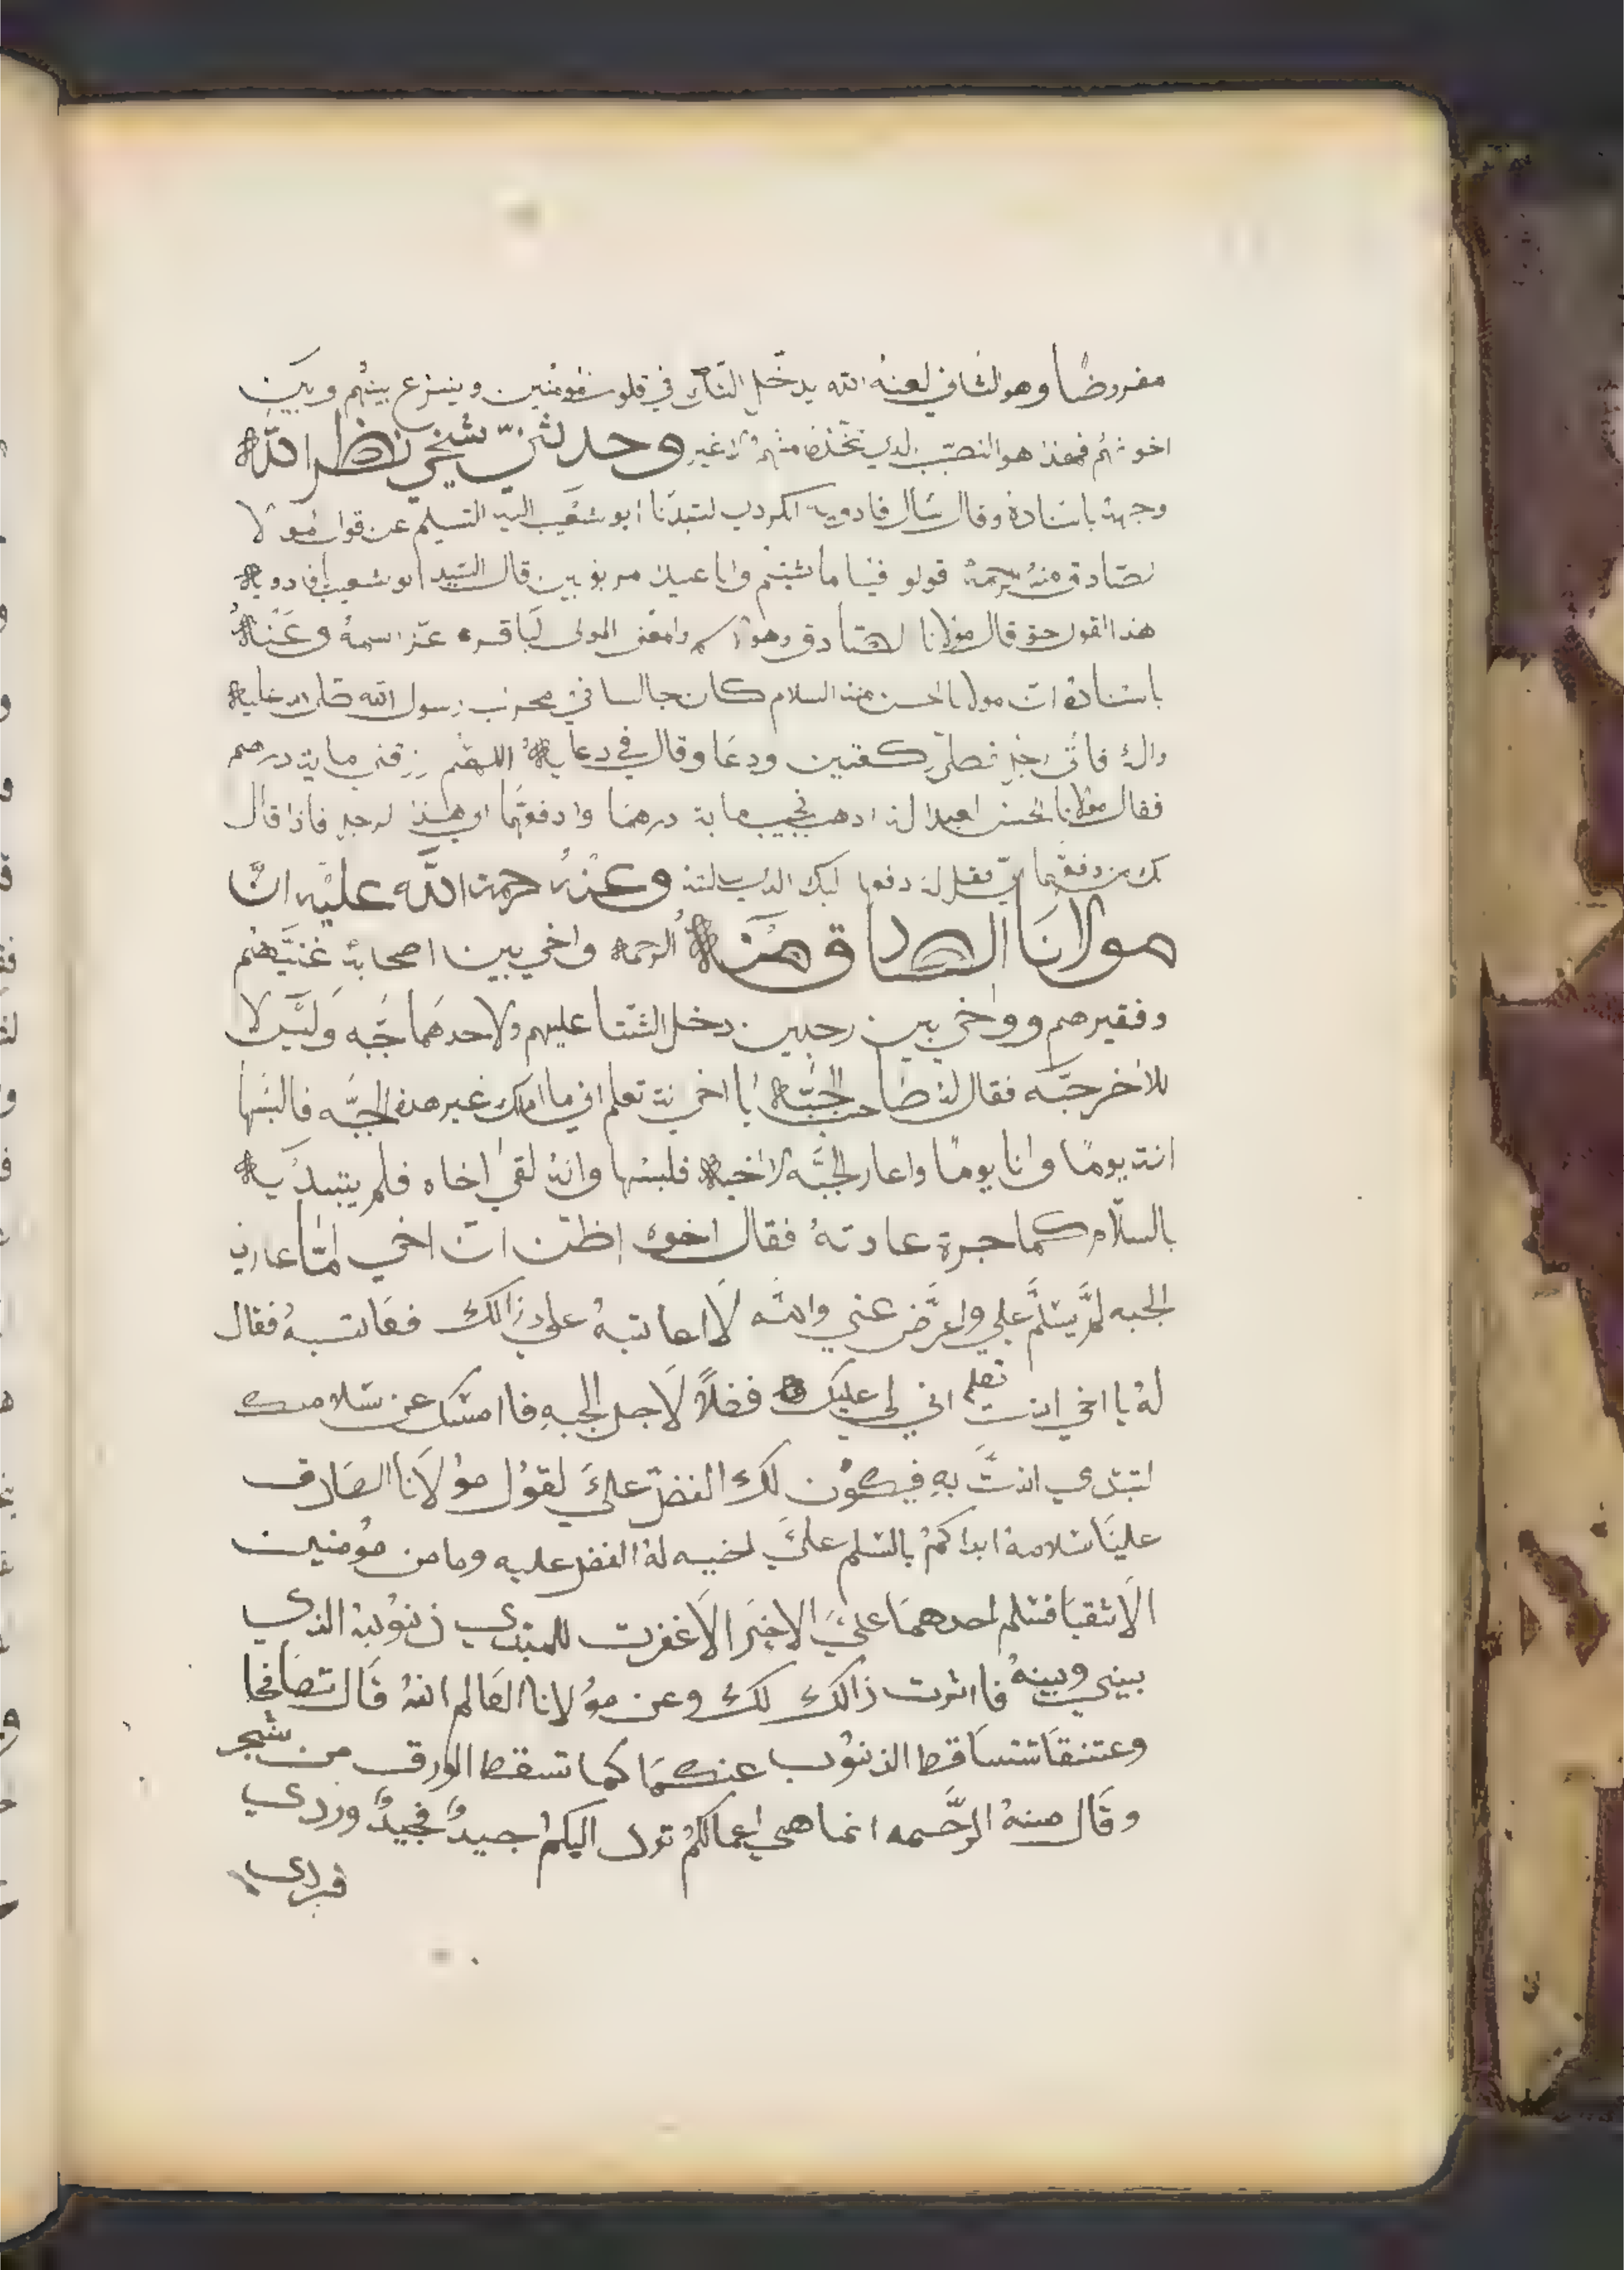 مفروضًا وهو الثاني لعنه الله يدخل الشك في قلوب المومنين وينزع بينهم وبين
اخوتهم فهذا هو النصيب الذي يتخذه منهم لا غير وحدثني شيخي نظر الله
وجهه باسناده وقال سال فادويه الكردي لسيدنا ابو شعيب اليه التسليم عن قول مولانا
الصادق منه الرحمة قولو فينا ما شيتم وانا عبيد مربوبين قال السيد ابو شعيب يا فادويه
هذا القول حق قال مولانا الصادق وهو الاسم والمعنى المولى الباقر عز اسمه وعنه
باسناده ان مولانا الحسن منه السلام كان جالسا في محراب رسول الله صلى الله عليه
واله فاتى رجل فصلى ركعتين ودعا وقال في دعايه اللهم ارزقني ماية درهم
فقال مولانا الحسن لعبدا له ادهب فجيب ماية درهما وادفعها الى هذا الرجل فاذا قال
لك من دفعها لي فقل له دفعها ليك الذي سالته وعنه رحمة الله عليه ان
مولانا الصادق منه الرحمه واخي بين اصحابه غنيهم
وفقيرهم وواخي بين رجلين دخل الشتا عليهم ولاحدهما جبه وليس لا
للاخر جبه فقال له صاحب الجبه يا اخي انت تعلم اني ما املك غير هذه الجبه فالبسها
انت يومًا وانا يومًا واعار الجبه لاخيه فلبسها وانه لقي اخاه فلم يبتديه
بالسلام كما جرة عادته فقال اخوه اظن ان اخي لمّا عارني
الجبه لم يسلم علي واعرض عني والله لا اعاتبه على ذالك فعاتبه فقال
له يا اخي انت تعلم اني لي عليك فضلاً لاجل الجبه فاامسك عن سلامك
لتبتدي انت به فيكون لك الفضل علي لقول مولانا الصادق
علينا سلامه ابداكم بالسلم علي لخيه له الفضل عليه وما من مومنين
الا تقيا فسلم احدهما علي الاخر الا غفرت للمبتدي ذنوبه الذي
بيني وبينه فااثرت ذالك لك وعن مولانا العالم انه قال تصافحا
وعتنقا تتساقط الذنوب عنكما كما تسقط الورق من شجر
وقال منه الرحمه انما هي اعمالكم ترد اليكم اجيدٌ فجيدٌ وردي
فردي